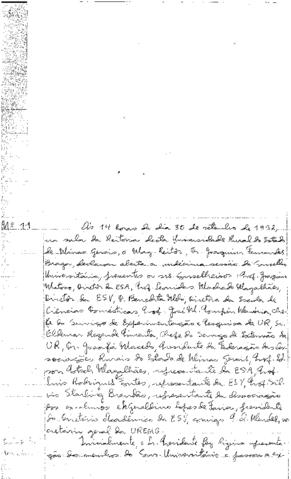 Nº 11
Às 14 horas do dia 30 de setembro de 1952,
na sala da Reitoria desta Universidade Rural do Estado
de Minas Gerais, o Mag. Reitor, Dr. Joaquim Fernandes
Braga, declarou aberta a sessão do Conselho
Universitário, presentes os srs. Conselheiros Prof. Joaquim
Matoso, Diretor da ESA, Prof. Leonidas Machado Magalhães,
Diretor da ESV, D. Benedita Melo, Diretora da Escola de
Ciências Domésticas, Prof. José M. Pompeu Memória, Che-
fe do Serviço de Experimentação e Pesquisa da UR, Sr.
Pimenta, Chefe do Serviço de Extensão da
UR, Dr. Macedo, Presidente da Federação das
Associações Rurais do Estado de Minas Gerais, Prof.
son Magalhães, representante da ESA, Prof.
Luis Rodrigues Fontes, representante da ESV, Prof. Sil-
vio Starling Brandão, representante da Associação
dos ex-alunos e Lopes de Faria, presidente
do Diretório Acadêmico da ESV, comigo se-
cretário geral da UREMG.
Inicialmente, o Sr. Presidente fez ligeira apresenta-
ção dos membros do Cons. Universitário e passou a ex-